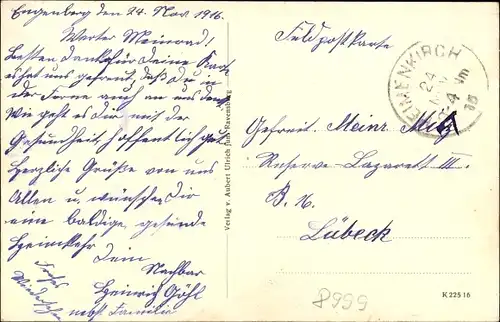 Engenberg den 24. Nov. 1916.
Werter Meinrad!
Besten Dank für Deine Karte
es hat uns gefreut, daß du in
der Ferne auch an uns denkst
Wie geht es Dir mit der
Gesundheit, hoffentlich gut
Herzliche Grüße von uns
Allen u. wünschen Dir
eine baldige gesunde
Heimkehr
Dein
Nachbar
Heinrich Göhl
nebst Familie
Frohes
Wiedersehen
Verlag v. Aubert Ulrich jun. Ravensburg
Feldpostkarte
MENKIRCH
24
NOV
4 Nm
16
Gefreit. Meinr.
Reserve-Lazarett III.
B. 16.
Lübeck
8999
K 225 16